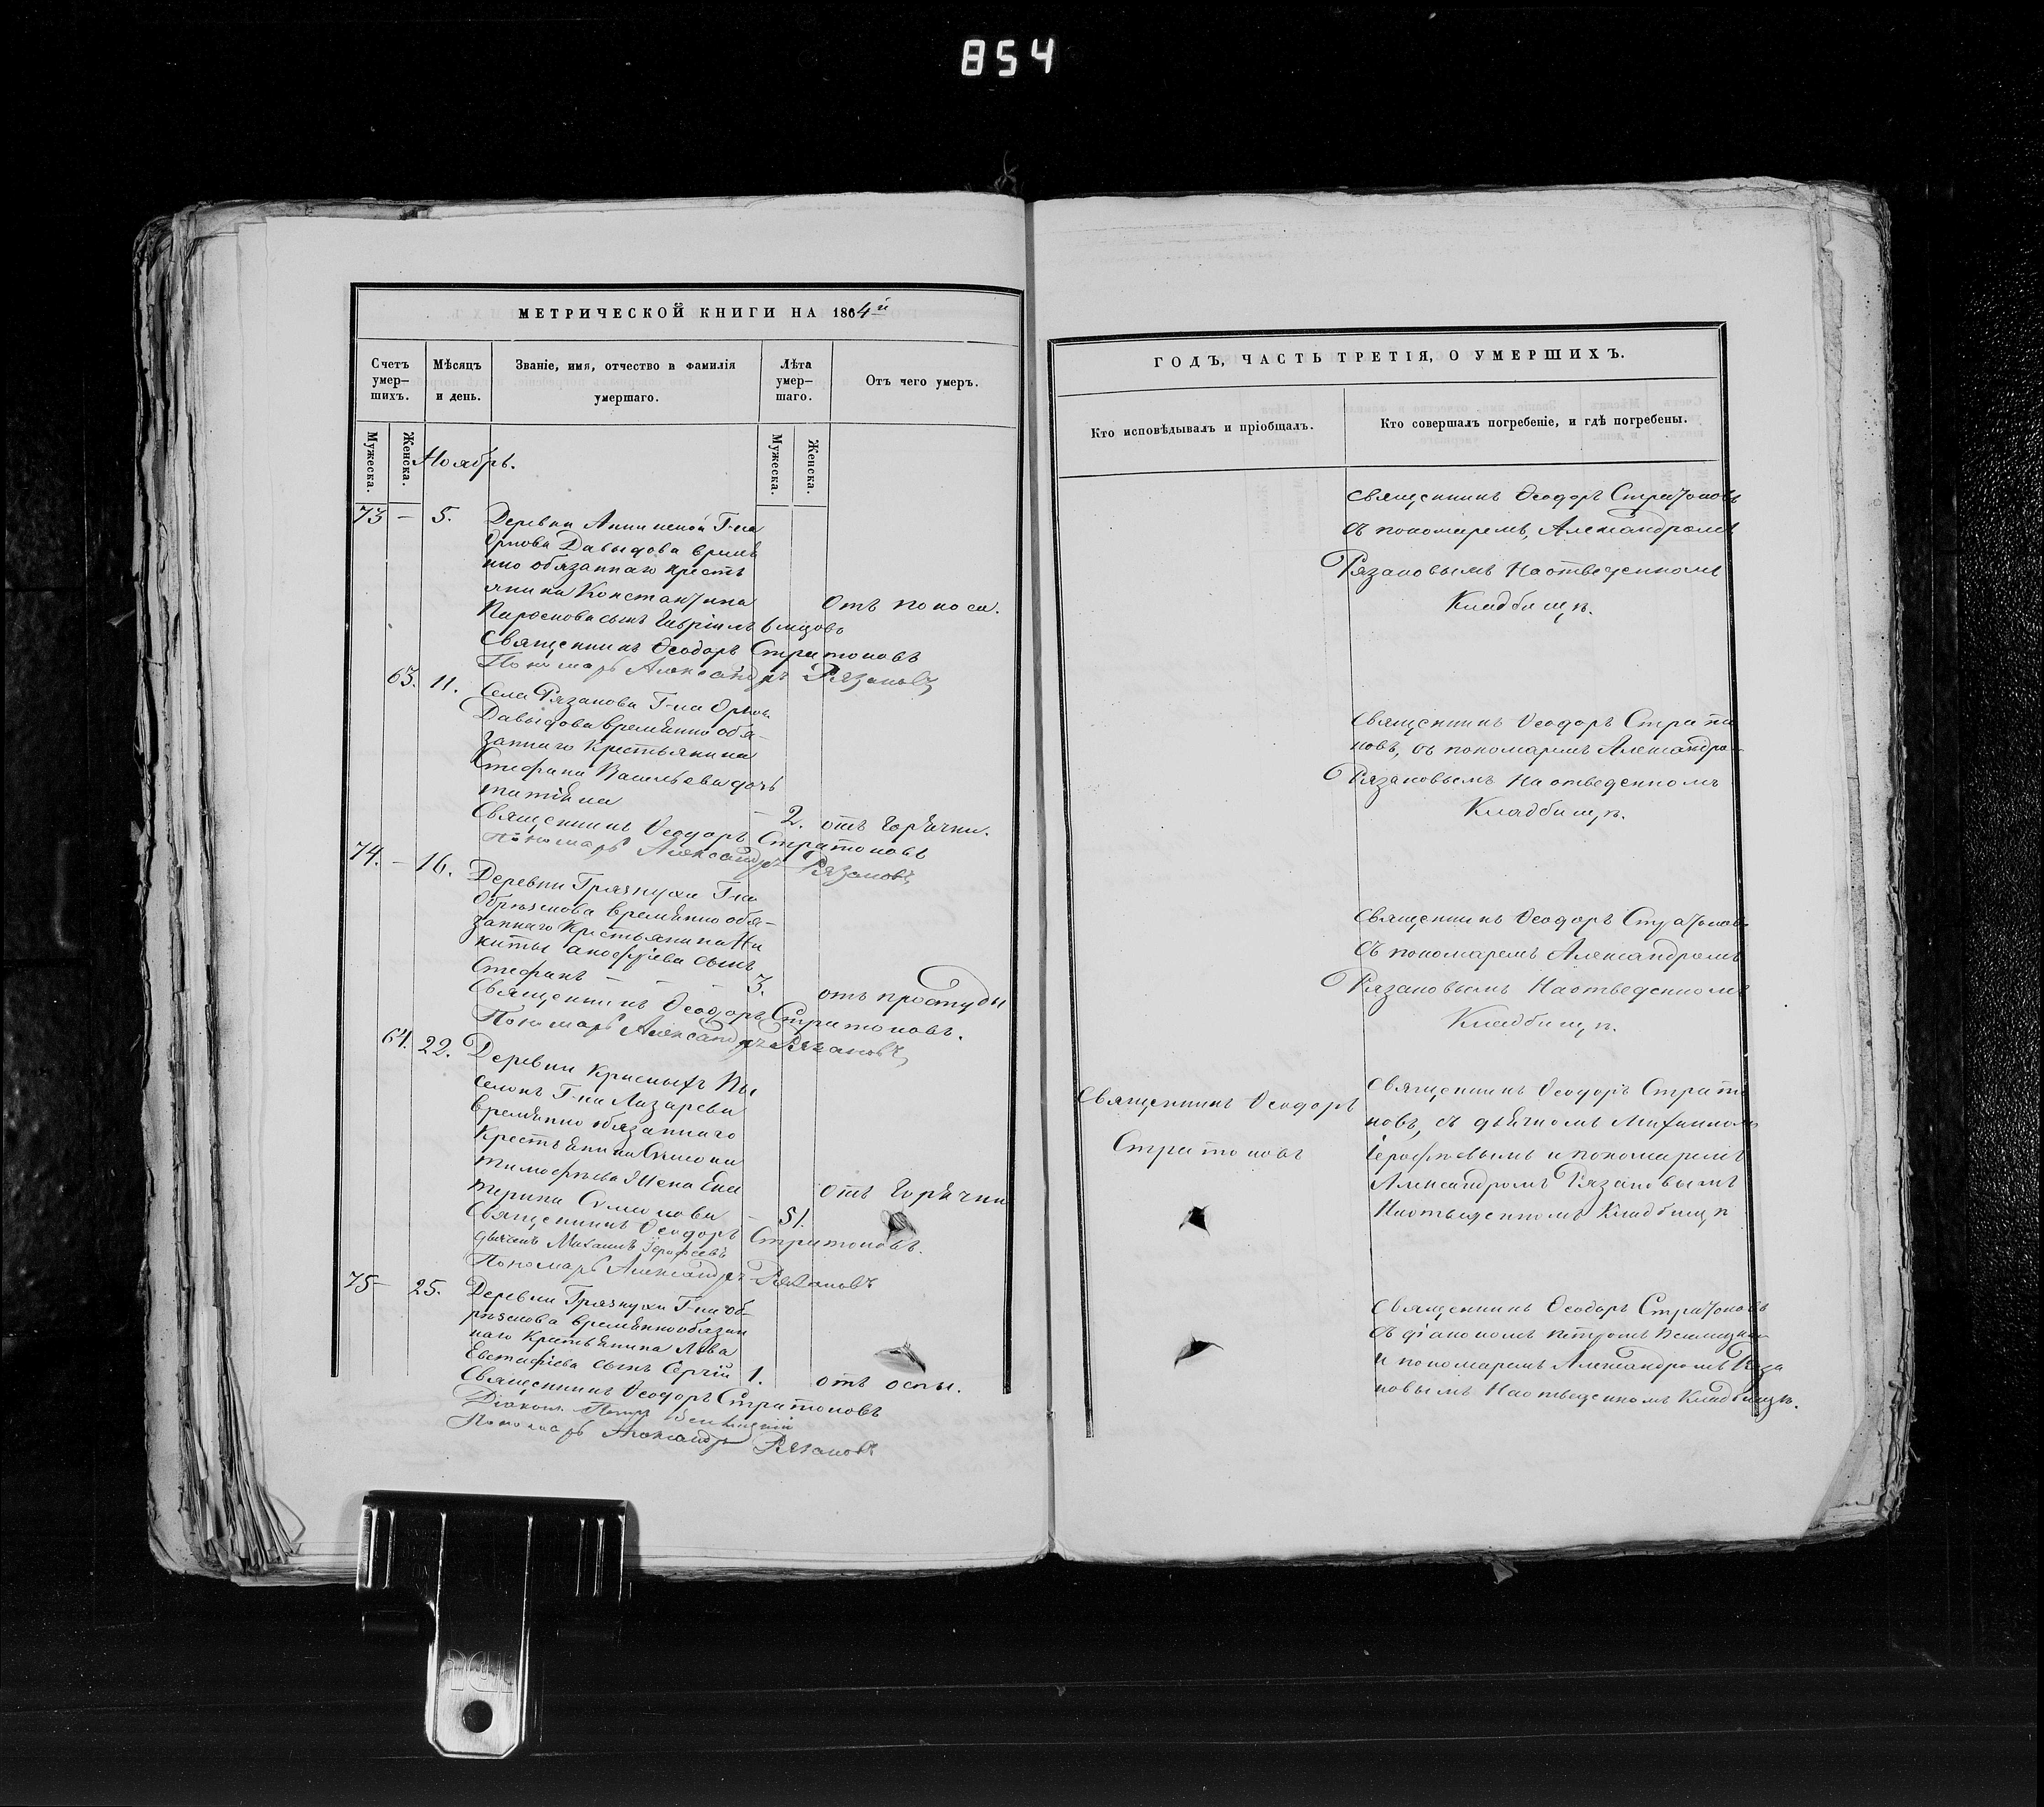 854
МЕТРИЧЕСКОЙ КНИГИ НА 1864й
Счетъ умер-шихъ.
Мѣсяцъ и день.
Званіе, имя, отчество и фамилія умершаго.
Лѣта умер-шаго.
Отъ чего умеръ.
Мужеска.
Женска.
Ноябрь.
Мужеска.
Женска.
73 – 5. Деревни Г-на
Орлова Давыдова времѣ
нно обязаннаго кресть
янина Константина
сынъ Гавріилъ 6 мѣцовъ
отъ поноса.
Священникъ Ѳеодоръ Стратоновъ
Пономарь Александръ Рязановъ
63. 11. Села Рязанова Г-на Орлов.
Давыдова времѣнно обя-
заннаго Крестьянина
Стефана Васильева дочь
татіана – 2. отъ горячки.
Священникъ Ѳеодоръ Стратоновъ
Пономарь Александръ Рязановъ
74. – 16. Деревни Грязнухи Г-на
Обрѣзкова времѣнно обя-
заннаго Крестьянина Ни
киты сынъ
Стефанъ – – 3. отъ простуды
Священникъ Ѳеодоръ Стратоновъ.
Пономарь Александръ Рязановъ
64. 22. Деревни Красныхъ Вы
селокъ Г-на Лазарева
времѣнно обязаннаго
Крестьянина Симона
тимофѣева жена Ека
терина Симонова – 51. отъ горячки
Священникъ Ѳеодоръ Стратоновъ.
дьячекъ Михаилъ Іерофѣевъ
Пономарь Александръ Рязановъ
75 – 25. Деревни Грязнухи Г-на Об-
рѣзкова времѣнно обязан
наго Крестьянина Льва
Евстафіева сынъ Сергій 1. отъ оспы.
Священникъ Ѳеодоръ Стратоновъ
Діаконъ Петръ
Пономарь Александръ Рязановъ
ГОДЪ, ЧАСТЬ ТРЕТІЯ, О УМЕРШИХЪ.
Кто исповѣдывалъ и пріобщалъ.
Кто совершалъ погребеніе, и гдѣ погребены.
Священникъ Ѳеодоръ Стратоновъ
съ пономаремъ, Александромъ
Рязановымъ На отведенномъ
Кладбищѣ.
Священникъ Ѳеодоръ Страто
новъ, съ пономаремъ Александро-
Рязановымъ На отведенномъ
Кладбищѣ.
Священникъ Ѳеодоръ Стратоновъ
Съ пономаремъ Александромъ
Рязановымъ На отведенномъ
Кладбищѣ.
Священникъ Ѳеодоръ
Стратоновъ
Священникъ Ѳеодоръ Страто
новъ, съ дьячкомъ Михаиломъ
Іерофѣевымъ и пономаремъ
Александромъ Рязановымъ
На отведенномъ Кладбищѣ
Священникъ Ѳеодоръ Стратоновъ
съ діакономъ петромъ
и пономаремъ Александромъ Ряза
новымъ На отведенномъ Кладбищѣ.